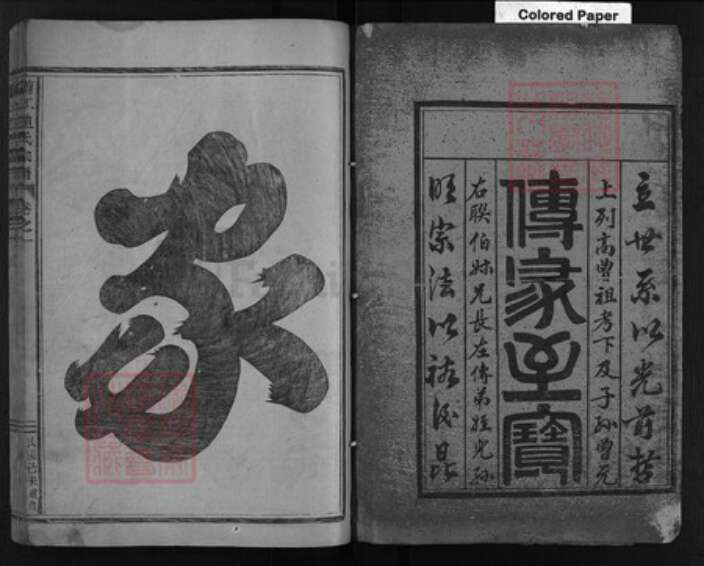 Colored Paper
立世系以光前哲
上列高曾祖考下及子孫曾元
傳家至寶
右聯伯姊兄長左傳弟姪兒孫
旺宗法以裕後昆
家